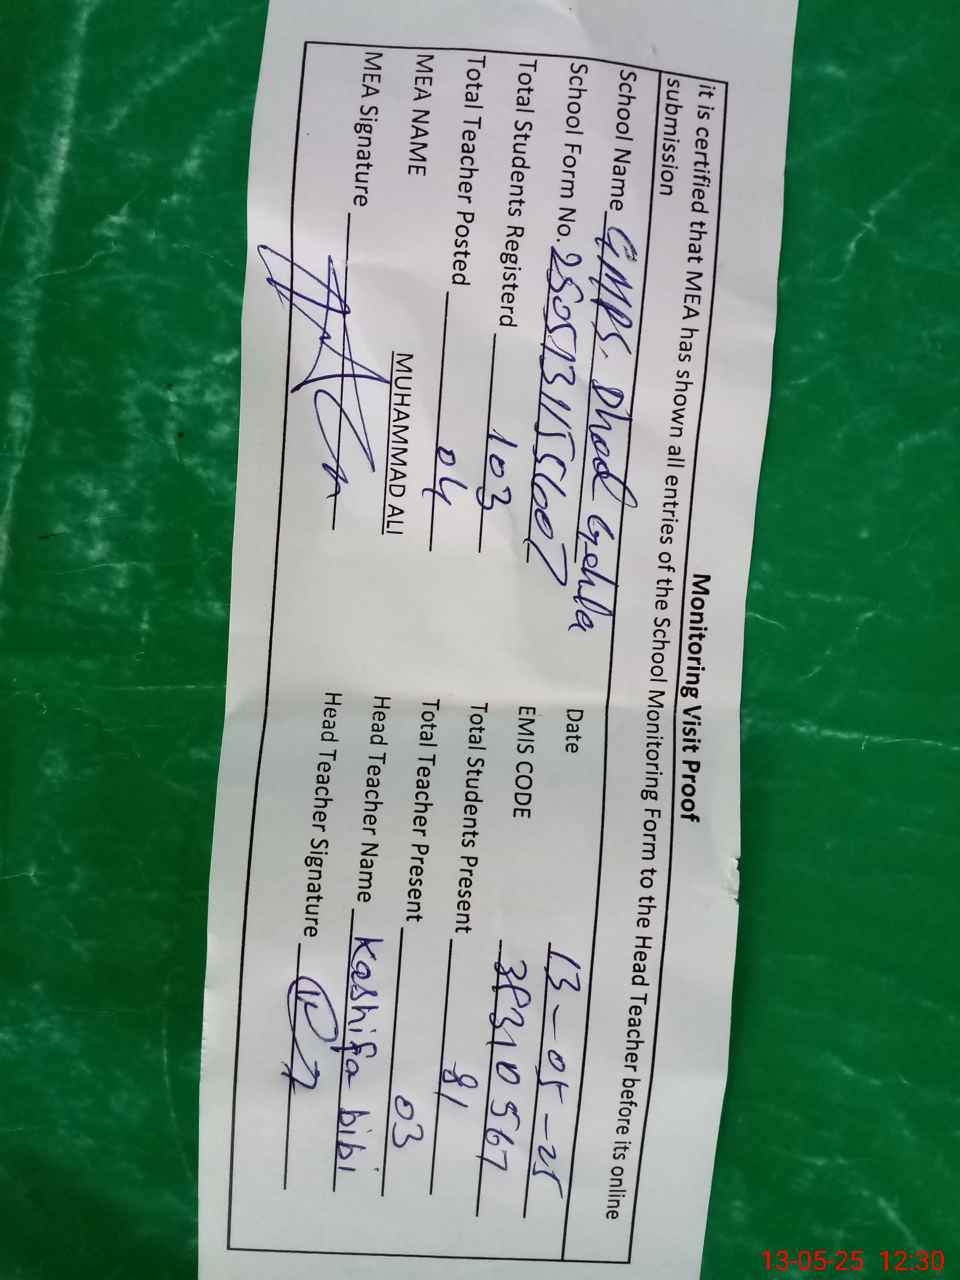 Monitoring Visit Proof
it is certified that MEA has shown all entries of the School Monitoring Form to the Head Teacher before its online
submission
School Name GMPS. Dhod Gehla
Date 13-05-25
School Form No. 2505131155607
EMIS CODE 38310567
Total Students Registerd 103
Total Students Present 81
Total Teacher Posted 04
Total Teacher Present 03
MEA NAME MUHAMMAD ALI
Head Teacher Name Kashifa bibi
MEA Signature
Head Teacher Signature
13-05-25 12:30